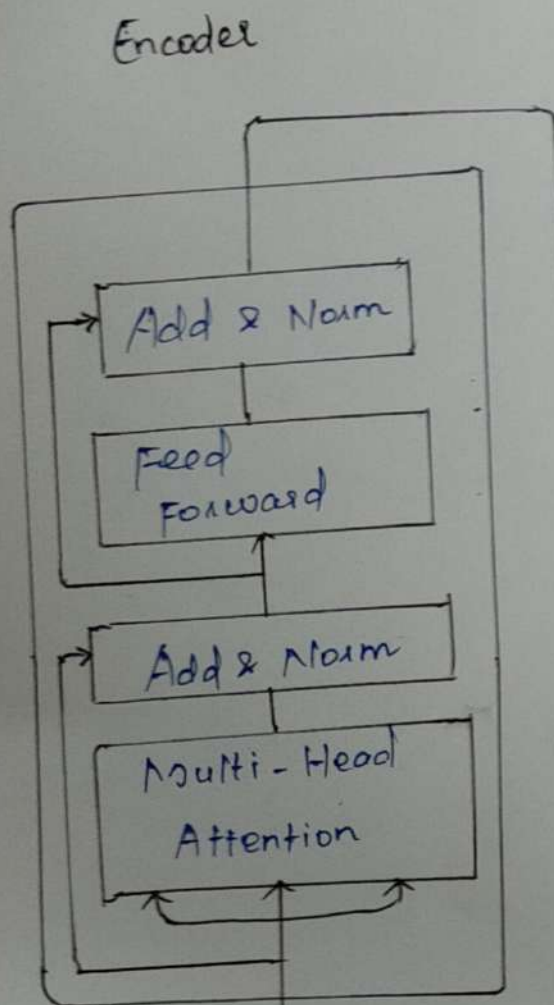 Encoder
Add & Norm
Feed
Forward
Add & Norm
Multi-Head
Attention